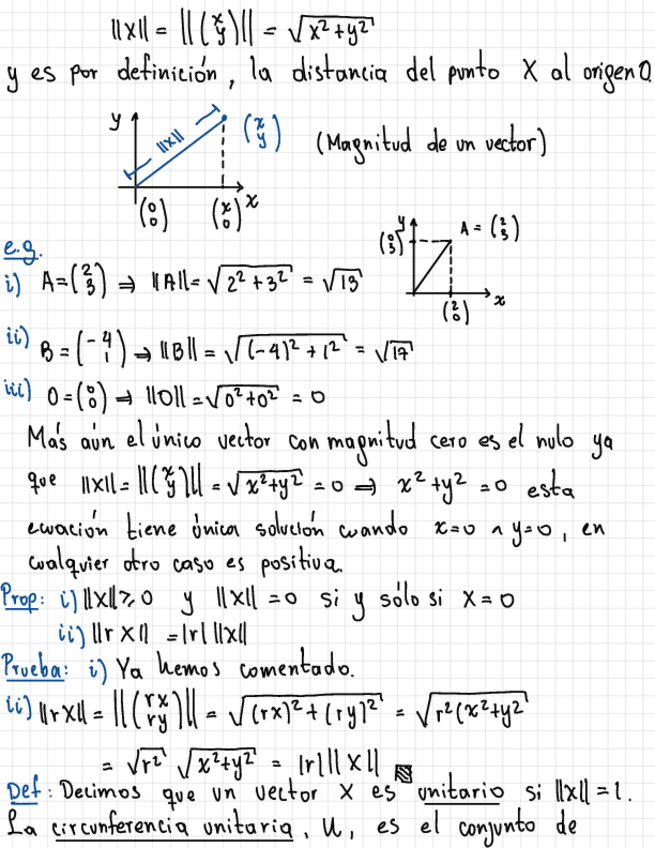 ||X|| = ||(x y)|| = √(x²+y²)
y es por definición, la distancia del punto X al origen O
y ||X|| (x y) (Magnitud de un vector)
(0 0) (x 0) x
e.g.
y (0 3) A = (2 3)
i) A = (2 3) ⇒ ||A|| = √(2²+3²) = √13
x (2 0)
ii) B = (-4 1) ⇒ ||B|| = √((-4)²+1²) = √17
iii) O = (0 0) ⇒ ||O|| = √(0²+0²) = 0
Más aún el único vector con magnitud cero es el nulo ya
que ||X|| = ||(x y)|| = √(x²+y²) = 0 ⇒ x²+y² = 0 esta
ecuación tiene única solución cuando x=0 ∧ y=0, en
cualquier otro caso es positiva.
Prop: i) ||X|| ≥ 0 y ||X|| = 0 si y sólo si X = 0
ii) ||r X|| = |r| ||X||
Prueba: i) Ya hemos comentado.
ii) ||rX|| = ||(rx ry)|| = √((rx)²+(ry)²) = √(r²(x²+y²
= √r² √(x²+y²) = |r| ||X||
Def: Decimos que un vector X es unitario si ||X|| = 1.
La circunferencia unitaria, U, es el conjunto de